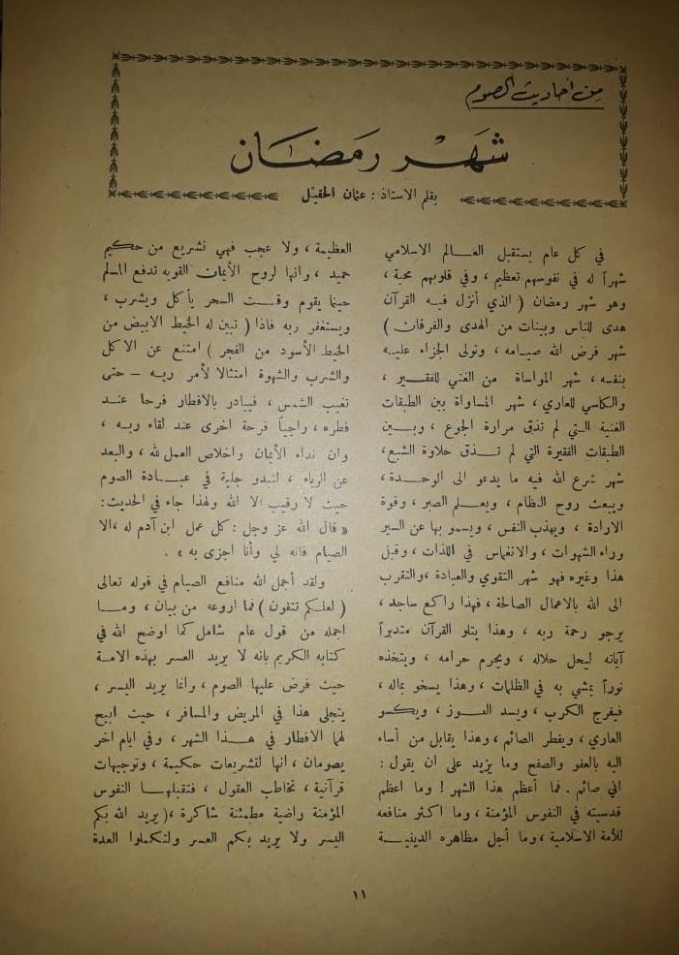 من أحاديث الصوم
شهر رمضان
بقلم الاستاذ : عثمان الحقيل
في كل عام يستقبل العالم الاسلامي
شهراً له في نفوسهم تعظيم ، وفي قلوبهم محبة ،
وهو شهر رمضان ( الذي أنزل فيه القرآن
هدى للناس وبينات من الهدى والفرقان )
شهر فرض الله صيامه ، وتولى الجزاء عليه
بنفسه ، شهر المواساة من الغني للفقير ،
والكاسي للعاري ، شهر المساواة بين الطبقات
الغنية التي لم تذق مرارة الجوع ، وبين
الطبقات الفقيرة التي لم تذق حلاوة الشبع ،
شهر شرع الله فيه ما يدعو الى الوحدة ،
ويبعث روح النظام ، ويعلم الصبر ، وقوة
الارادة ، ويهذب النفس ، ويسمو بها عن السير
وراء الشهوات ، والانغماس في اللذات ، وقبل
هذا وغيره فهو شهر التقوي والعبادة ، والتقرب
الى الله بالاعمال الصالحة ، فهذا راكع ساجد ،
يرجو رحمة ربه ، وهذا يتلو القرآن متدبراً
آياته ليحل حلاله ، ويحرم حرامه ، ويتخذه
نوراً يمشي به في الظلمات ، وهذا يسخو بماله ،
فيفرج الكرب ، ويسد العوز ، ويكسو
العاري ، ويفطر الصائم ، وهذا يقابل من أساء
اليه بالعفو والصفح وما يزيد على ان يقول :
اني صائم . فما أعظم هذا الشهر ! وما اعظم
قدسيته في النفوس المؤمنة ، وما اكثر منافعه
للأمة الاسلامية ، وما أجل مظاهره الدينية
العظيمة ، ولا عجب فهي تشريع من حكيم
حميد ، وانها لروح الأيمان القويه تدفع المسلم
حينما يقوم وقت السحر يأكل ويشرب ،
ويستغفر ربه فاذا ( تبين له الخيط الابيض من
الخيط الأسود من الفجر ) امتنع عن الاكل
والشرب والشهوة امتثالا لأمر ربه – حتى
تغيب الشمس ، فيبادر بالافطار فرحا عند
فطره ، راجياً فرحة اخرى عند لقاء ربه ،
وان نداء الأيمان واخلاص العمل لله ، والبعد
عن الرياء ، لتبدو جلية في عبادة الصوم
حيث لا رقيب الا الله ولهذا جاء في الحديث :
« قال الله عز وجل : كل عمل ابن آدم له ، الا
الصيام فانه لي وأنا اجزى به » .
ولقد أجمل الله منافع الصيام في قوله تعالى
( لعلكم تتقون ) فما اروعه من بيان ، وما
اجمله من قول عام شامل كما اوضح الله في
كتابه الكريم بانه لا يريد العسر بهذه الامة
حيث فرض عليها الصوم ، وانما يريد اليسر ،
يتجلى هذا في المريض والمسافر ، حيث ابيح
لهما الافطار في هذا الشهر ، وفي ايام اخر
يصومان ، انها لتشريعات حكيمة ، وتوجيهات
قرآنية ، تخاطب العقول ، فتقبلها النفوس
المؤمنة راضية مطمئنة شاكرة ، ( يريد الله بكم
اليسر ولا يريد بكم العسر ولتكملوا العدة
١١